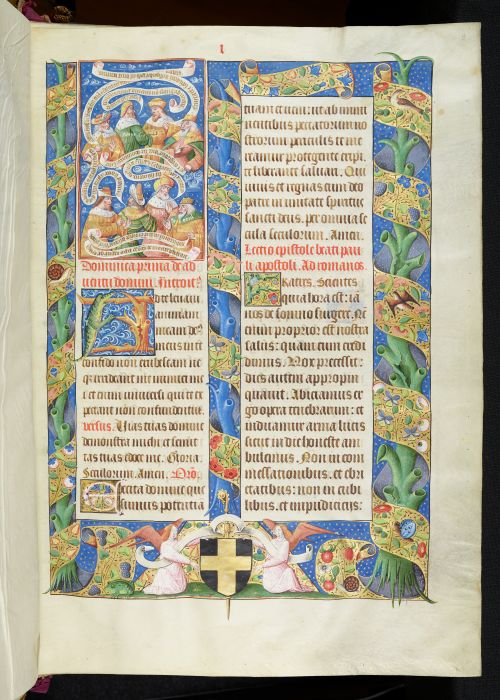 I
Dominica prima de ad
uentu domini. Introit⁹
Ad te leuaui
animam
meam de⁹
meus in te
confido non erubescam ne
q3 irrideant me inimici me
i et enim uniuersi qui te ex
pectant non confundentur.
versus. Uias tuas domine
demonstra michi et semit
tas tuas edoce me. Gloria
Seculorum. Amen. Oro.
Excita domine que
sumus potentia
tuam et veni: ut ab immi
nentibus peccatorum no
strorum periculis te me
reamur protegente eripi.
te liberante saluari. Qui
uiuis et regnas cum deo
patre in unitate spiritus
sancti deus. per omnia se
cula seculorum. Amen.
Lectio epistole beati pau
li apostoli. Ad romanos.
Fratres. Scientes
quia hora est: ia
nos de somno surgere. Nc̄
enim proprior est nostra
salus: quam cum credi
dimus. Nox precessit:
dies autem appropin
quauit. Abiciamus er
go opera tenebrarum: et
induamur arma lucis
sicut in die honeste am
bulemus. Non in com
messationibus. et ebri
etatibus: non in cubi
libus. et impudicitijs: